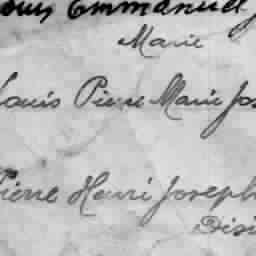 Louis Emmanuel J
Marie
Louis Pierre Marie Jos
Pierre Henri Joseph
Dési